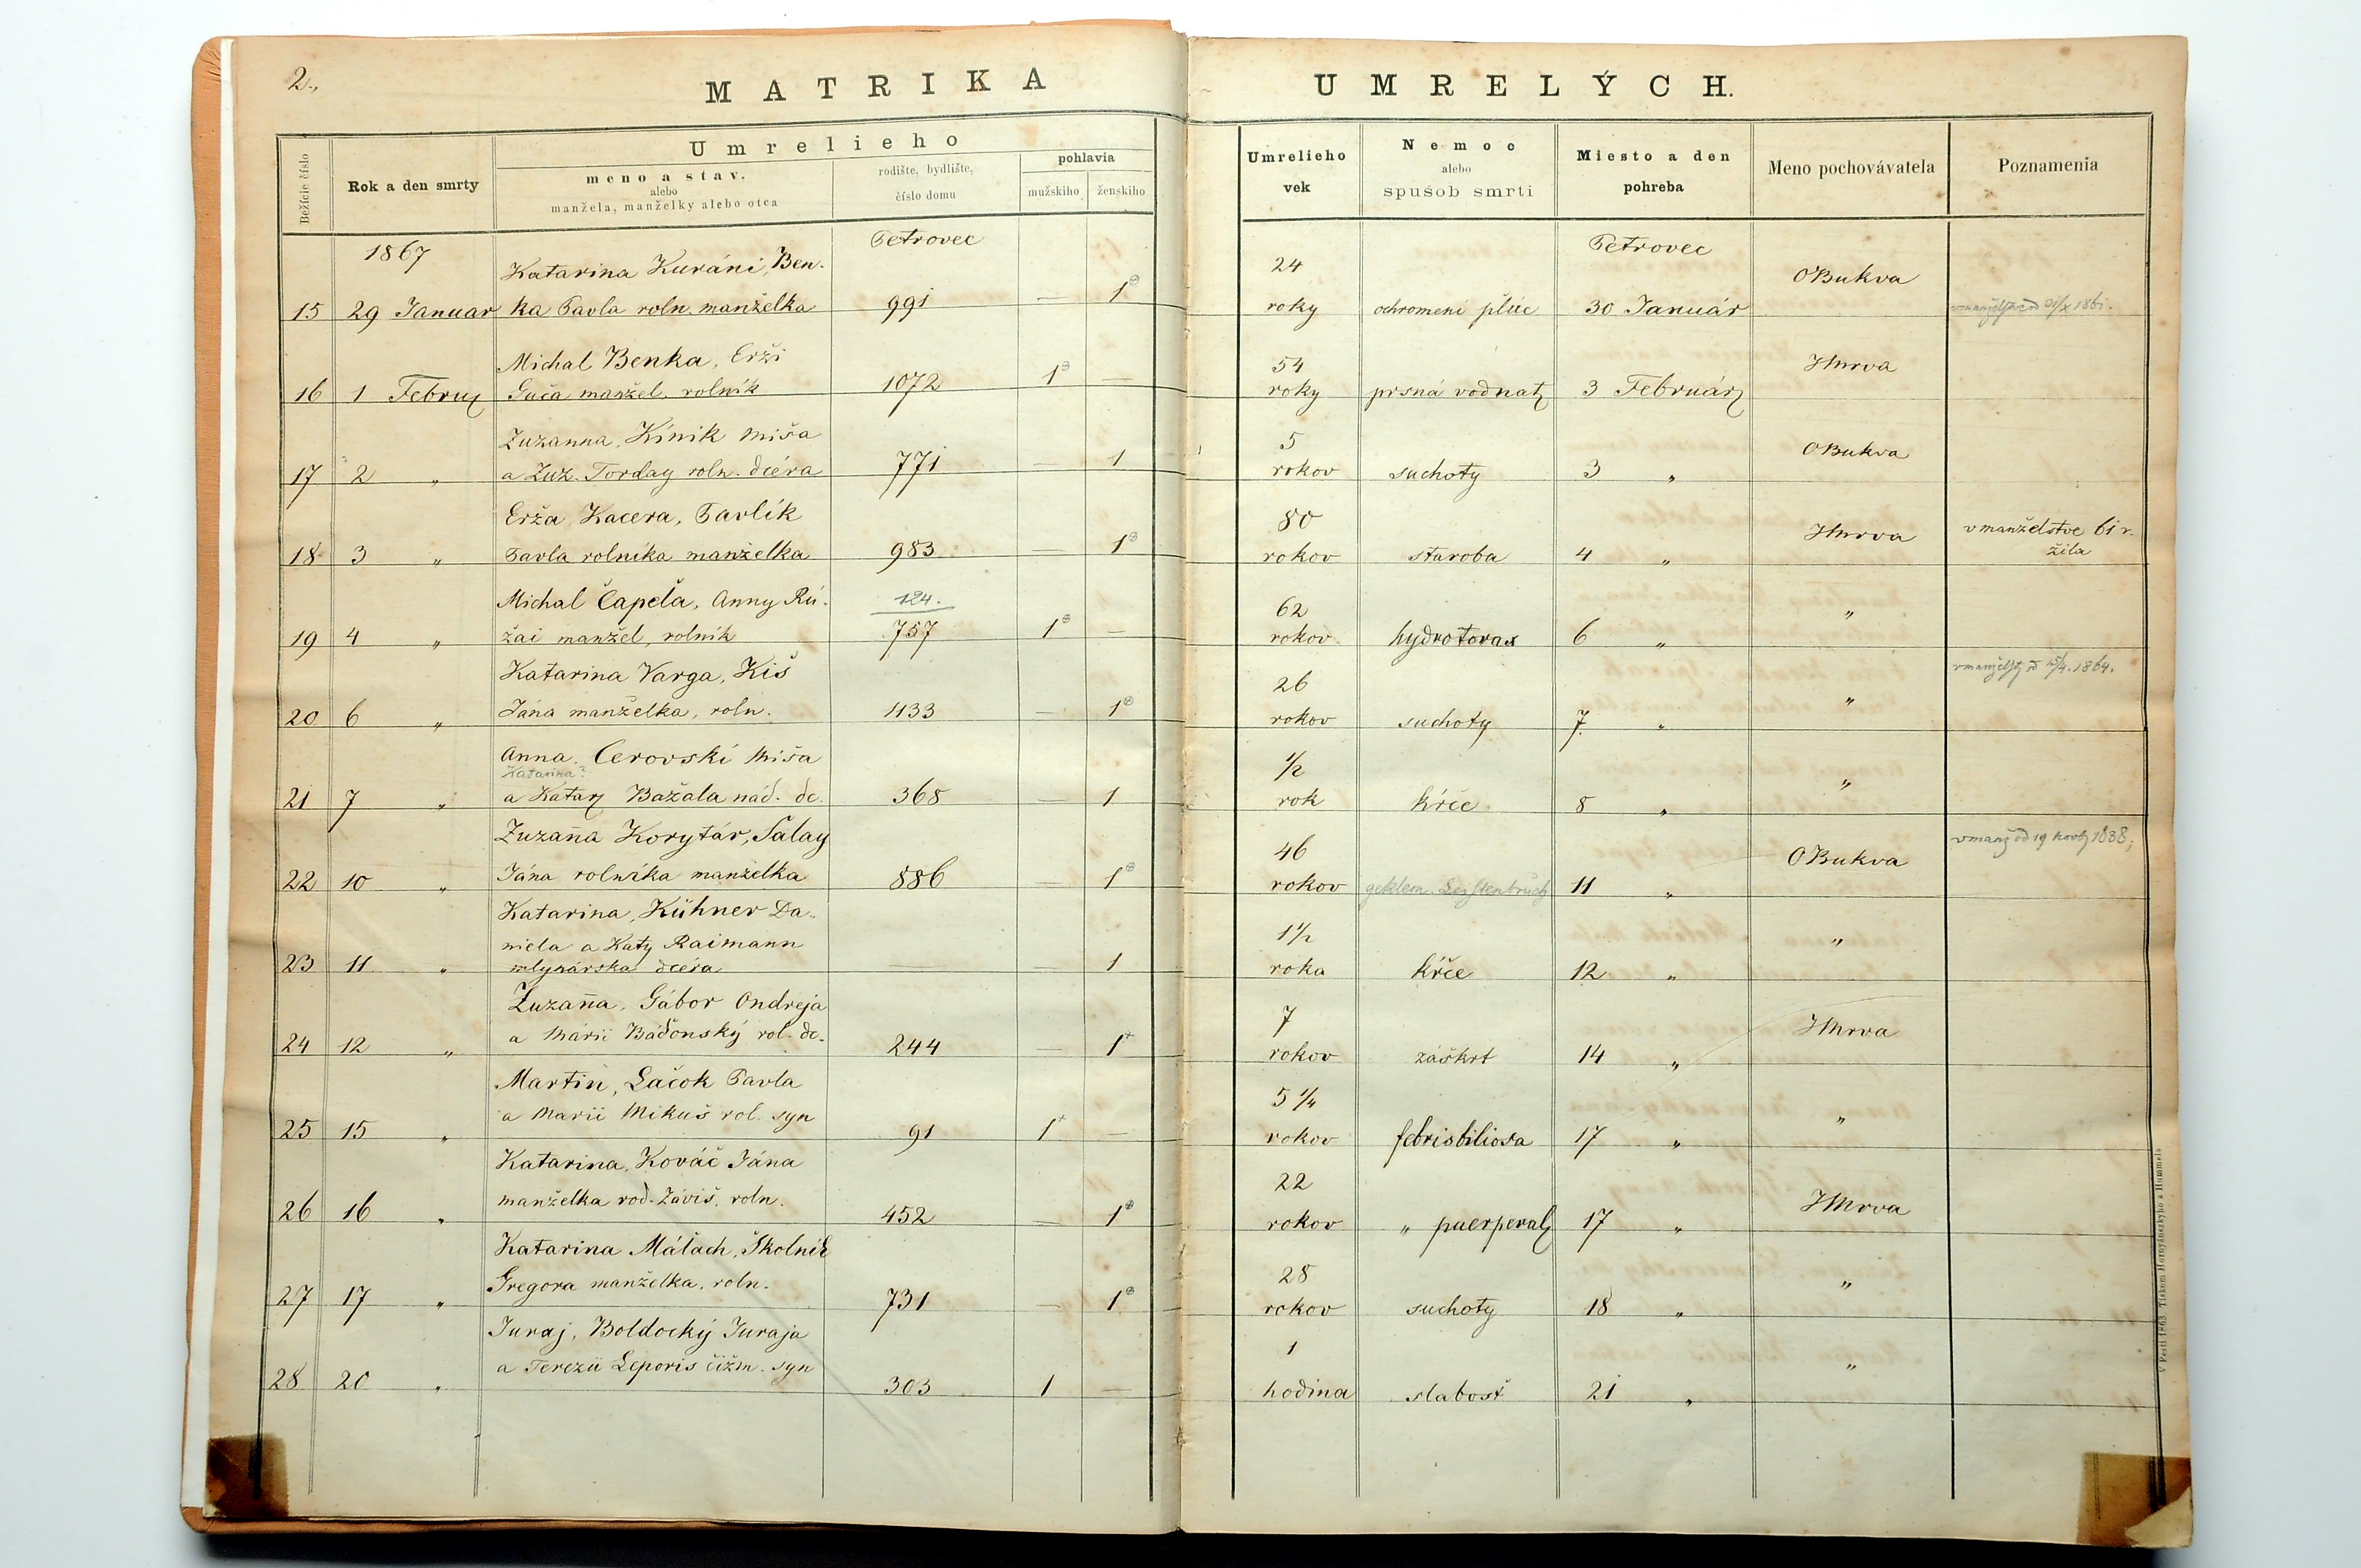 2.,
MATRIKA UMRELÝCH.
Bežície číslo
Rok a den smrty
Umrelieho
meno a stav.
alebo
manžela, manželky alebo otca
rodište, bydlište,
číslo domu
pohlavia
mužskiho
ženskiho
Umrelieho
vek
Nemoc
alebo
spusob smrti
Miesto a den
pohreba
Meno pochovávatela
Poznamenia
1867 Petrovec Petrovec
Katarina Kuráni, Ben- 24 OBukva
15 29 Januar ka Pavla roln. manželka 991 — 1 roky ochromení plúc 30 Január
Michal Benka, Erži 54 JMrva
16 1 Februar Guča manžel, rolník 1072 1 — roky prsná vodnat 3 Február
Zuzanna, Kínik Miša 5 OBukva
17 2 „ a Zuz. Torday roln. dcéra 771 — 1 rokov suchoty 3 „
Erža Kacera, Pavlík 80 JMrva v manželstve 61 r.
18 3 „ Pavla rolníka manželka 983 — 1 rokov staroba 4 „ žila
Michal Čapeľa, Anny Rú- 124. 62 „
19 4 „ žai manžel, rolník 757 1 — rokov hydrotorax 6 „
Katarina Varga, Kiš 26 „ 1864.
20 6 „ Jána manželka, roln. 1133 — 1 rokov suchoty 7. „
Anna, Cerovskí Miša 1/2 „
Katarina?
21 7 „ a Katar Bažala nád. dc. 368 — 1 rok kŕče 8 „
Zuzaňa Korytár, Salay 46 OBukva v manž od 19 novb 1838;
22 10 „ Jána rolníka manželka 886 — 1 rokov geklem. Leistenbruch 11 „
Katarina, Kühner Da- 1 1/2 „
niela a Katy Raimann
23 11 „ mlynárska dcéra — — 1 roka kŕče 12 „
Zuzaňa, Gábor Ondreja 7 JMrva
24 12 „ a Márii Báďonský rol. dc. 244 — 1 rokov záškrt 14 „
Martin, Lačok Pavla 5 1/4 „
25 15 „ a Marii Mikuš rol. syn 91 1 — rokov febris biliosa 17 „
Katarina, Kováč Jána 22 JMrva
26 16 „ manželka rod. Záviš, roln. 452 — 1 rokov „ puerperal 17 „
Katarina Máľach, Školník 28 „
27 17 „ Gregora manželka, roln. 731 — 1 rokov suchoty 18 „
Juraj, Boldocký Juraja 1 „
28 20 „ a Terezii Leporis čižm. syn 303 1 — hodina slabosť 21 „
V Pešti 1863. Tiskem Hornyánszkyho a Hummela